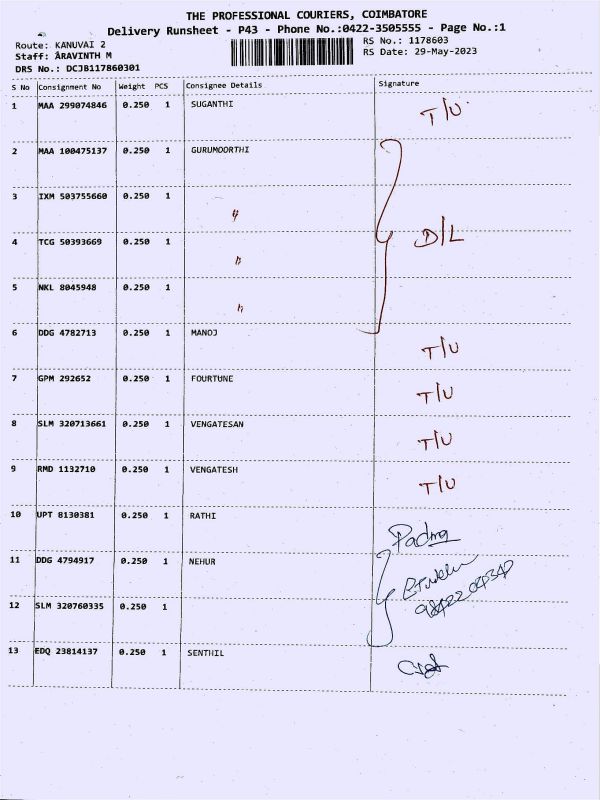 THE PROFESSIONAL COURIERS, COIMBATORE
Delivery Runsheet - P43 - Phone No.:0422-3505555 - Page No.:1
Route: KANUVAI 2 RS No.: 1178603
Staff: ARAVINTH M RS Date: 29-May-2023
DRS No.: DCJB117860301
S No Consignment No Weight PCS Consignee Details Signature
1 MAA 299074846 0.250 1 SUGANTHI T/U
2 MAA 100475137 0.250 1 GURUMOORTHI
3 IXM 503755660 0.250 1 〃
4 TCG 50393669 0.250 1 〃 D/L
5 NKL 8045948 0.250 1 〃
6 DDG 4782713 0.250 1 MANOJ T/U
7 GPM 292652 0.250 1 FOURTUNE T/U
8 SLM 320713661 0.250 1 VENGATESAN T/U
9 RMD 1132710 0.250 1 VENGATESH T/U
10 UPT 8130381 0.250 1 RATHI Padma
11 DDG 4794917 0.250 1 NEHUR
12 SLM 320760335 0.250 1
13 EDQ 23814137 0.250 1 SENTHIL